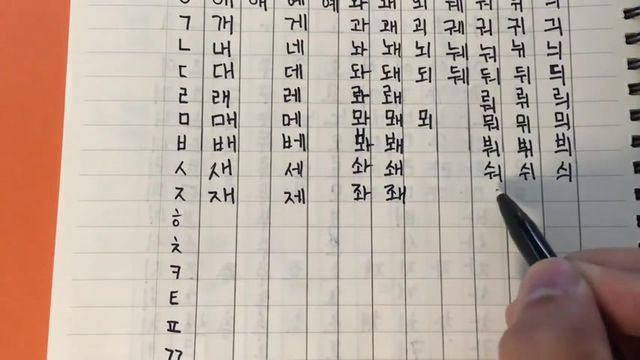 ㄱ 개 게 과 괘 괴 궤 궈 귀 긔
ㄴ 내 네 놔 놰 뇌 눼 눠 뉘 늬
ㄷ 대 데 돠 돼 되 뒈 둬 뒤 듸
ㄹ 래 레 롸 뢔 뤄 뤼 릐
ㅁ 매 메 뫄 뫠 뫼 뭐 뮈 믜
ㅂ 배 베 봐 봬 붜 뷔 븨
ㅅ 새 세 솨 쇄 숴 쉬 싀
ㅈ 재 제 좌 좨
ㅎ
ㅊ
ㅋ
ㅌ
ㅍ
ㄲ